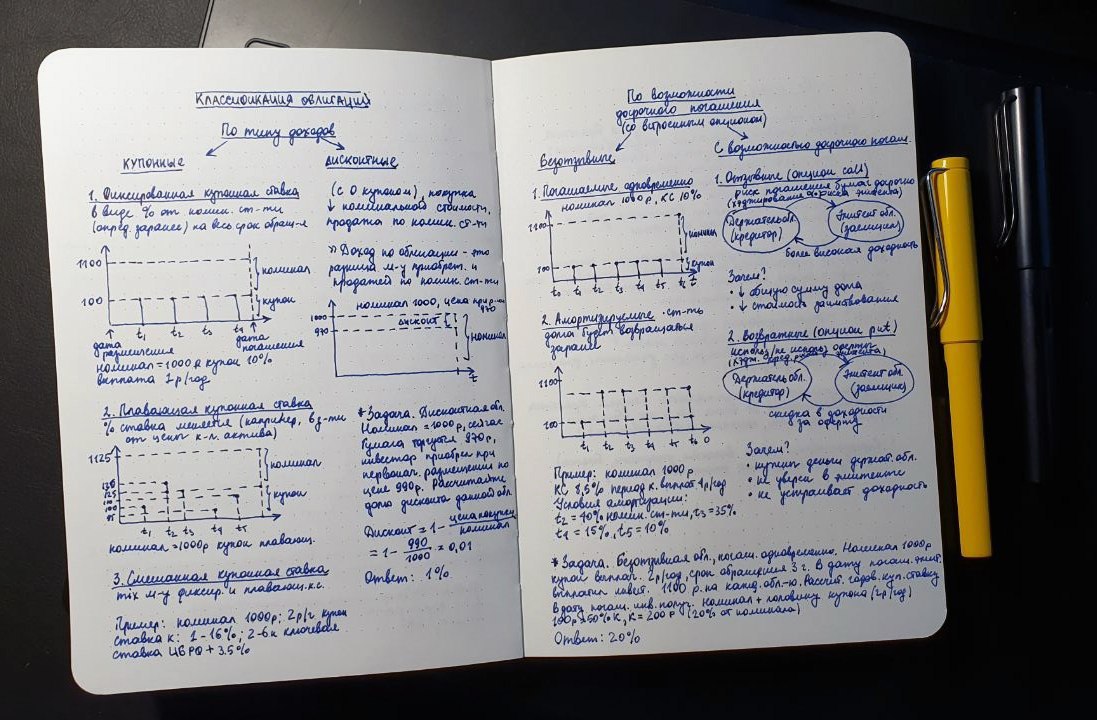 КЛАССИФИКАЦИЯ ОБЛИГАЦИЙ
По типу доходов
КУПОННЫЕ
1. Фиксированная купонная ставка
в виде % от номин. ст-ти
(опред. заранее) на весь срок обращ-я
1100
100
номинал
купон
t1 t2 t3 t4
дата размещения
дата погашения
номинал = 1000 ₽ купон 10%
выплата 1р/год
2. Плавающая купонная ставка
% ставка меняется (например, в з-ти
от цены к-л. актива)
1125
125
100
номинал
купон
t1 t2 t3 t4 t5
номинал = 1000р купон плавающ.
3. Смешанная купонная ставка
mix м-у фиксир. и плавающ. к.с.
Пример: номинал 1000р; 2р/г купон
ставка к: 1 - 16%; 2-6 к ключевая
ставка ЦБ РФ + 3.5%
ДИСКОНТНЫЕ
(с 0 купоном), покупка
↓ номинальной стоимости,
продажа по номин. ст-ти
» Доход по облигации - это
разница м-у приобрет. и
продажей по номин. ст-ти
номинал 1000, цена 970
1000
970
дисконт
номинал
t
* Задача. Дисконтная обл.
Номинал = 1000р, сейчас
бумага торгуется 970р,
инвестор приобрел при
первонач. размещении по
цене 990р. Рассчитайте
долю дисконта данной обл.
Дисконт = 1 - цена покупки / номинал
= 1 - 990/1000 = 0,01
Ответ: 1%
По возможности
досрочного погашения
(со встроенным опционом)
Безотзывные
1. Погашаемые одновременно
номинал 1000 р, КС 10%
1100
100
номинал
купон
t0 t1 t2 t3 t4 t5 t
2. Амортизируемые - ст-ть
долга будет возвращаться
заранее
1100
100
t1 t2 t3 t4 t5 t6
Пример: номинал 1000
КС 8,5% период к. выплат 1р/год
Условия амортизации:
t2 = 40% номин. ст-ти, t3 = 35%
t4 = 15%, t5 = 10%
С возможностью досрочного погаш.
1. Отзывные (опцион call)
риск погашения бумаг досрочно
Держатель обл. (кредитор)
Эмитент обл. (заемщик)
более высокая доходность
Зачем?
• ↓ общую сумму долга
• ↓ стоимость заимствования
2. Возвратные (опцион put)
использ/не использ оферту
Держатель обл. (кредитор)
Эмитент обл. (заемщик)
скидка в доходности
за оферту
Зачем?
• нужны деньги держат. обл.
• не уверен в эмитенте
• не устраивает доходность
* Задача. Безотзывная обл., погаш. одновременно. Номинал 1000р
купон выплач. 2р/год, срок обращения 3 г. В дату погаш. эмит.
выплатил инвест. 1100 р. на кажд. обл-ю. Рассчит. годов. куп. ставку
В дату погаш. инв. получ. номинал + половину купона (2р/год)
100р = 50% К, К = 200 р (20% от номинала)
Ответ: 20%